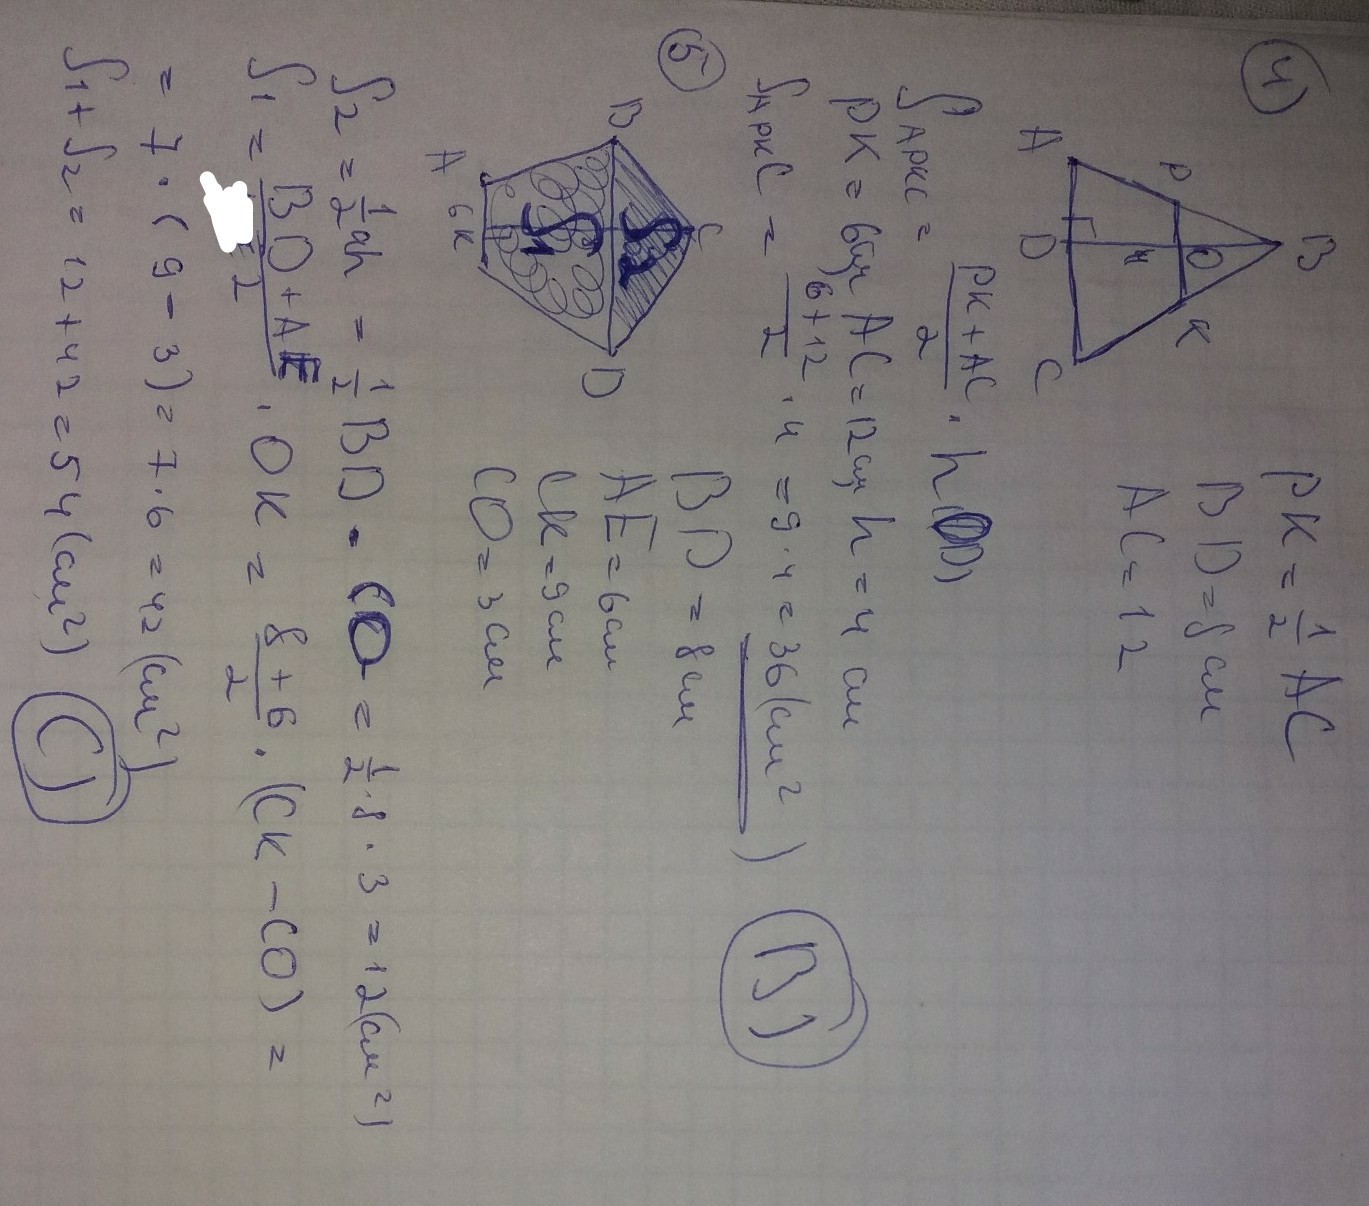 4
B
P
O
K
4
A
D
C
PK = 1/2 AC
BD = 8 см
AC = 12
S APKC = (PK + AC)/2 · h(OD)
PK = 6см, AC = 12см, h = 4 см
S APKC = (6+12)/2 · 4 = 9 · 4 = 36 (см²)
B)
5
B
C
D
A
6
K
S1
S2
BD = 8см
AE = 6см
CK = 9см
CO = 3см
S2 = 1/2 ah = 1/2 BD · CO = 1/2 · 8 · 3 = 12 (см²)
S1 = (BD + AE)/2 · OK = (8 + 6)/2 · (CK − CO) =
= 7 · (9 − 3) = 7 · 6 = 42 (см²)
S1 + S2 = 12 + 42 = 54 (см²)
C)